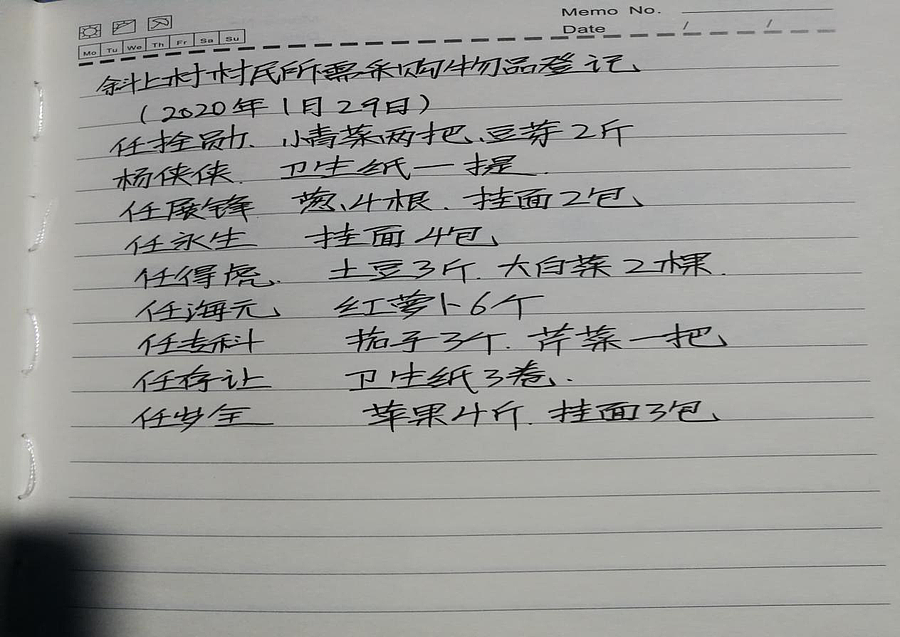 Memo No.
Date / /
Mo Tu We Th Fr Sa Su
斜上村村民所需采购物品登记
(2020年1月29日)
任拴勋、小青菜两把、豆芽2斤
杨侠侠 卫生纸一提.
任展锋 葱、4根. 挂面2包、
任永生 挂面4包、
任得虎. 土豆3斤. 大白菜2棵.
任海元、 红萝卜6个
任专科 茄子3个. 芹菜一把、
任存让 卫生纸3卷.
任岁全 苹果4斤. 挂面3包、